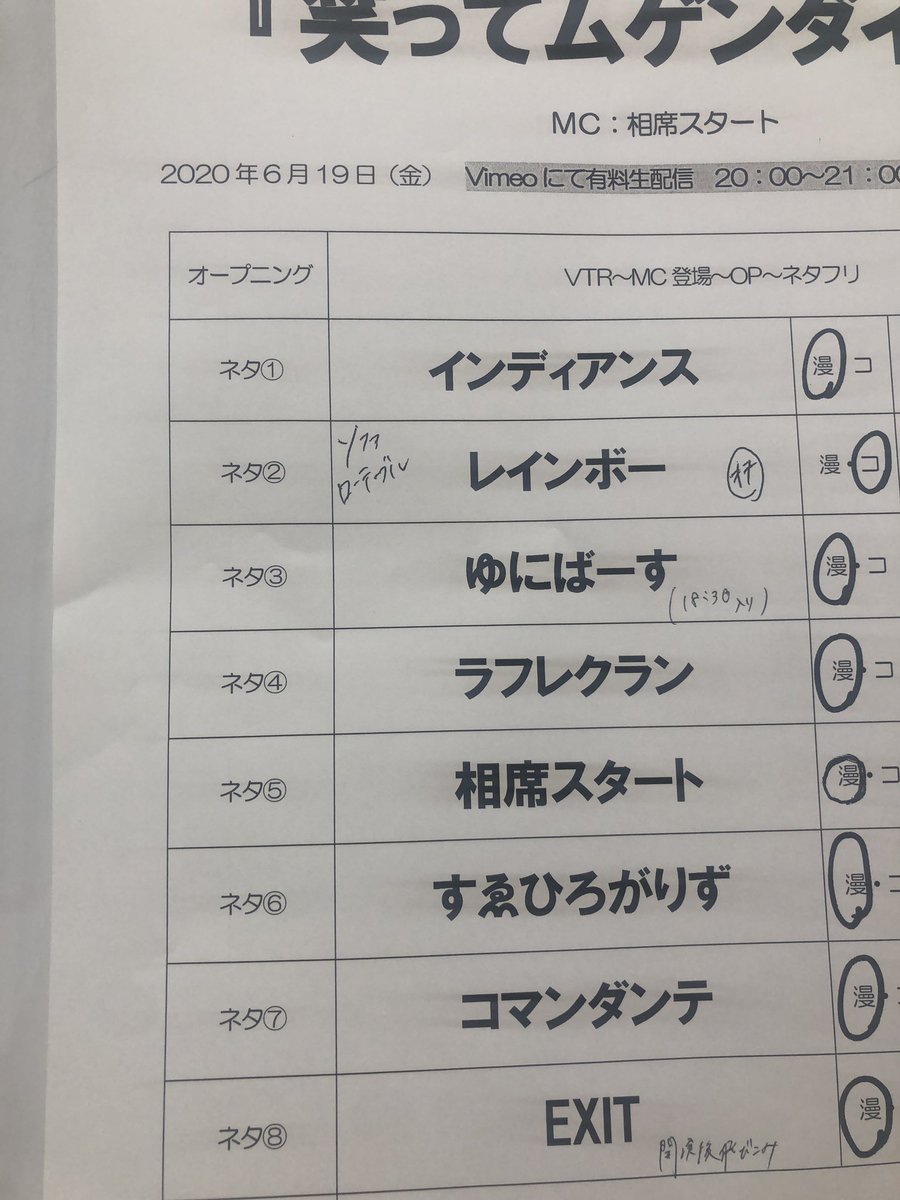 『笑ってムゲンダイ
MC:相席スタート
2020年6月19日(金) Vimeoにて有料生配信 20:00~21:00
オープニング VTR~MC登場~OP~ネタフリ
ネタ① インディアンス 漫 コ
ソファ
ローテーブル
ネタ② レインボー 漫・コ
ネタ③ ゆにばーす 漫・コ
(18:30入り)
ネタ④ ラフレクラン 漫・コ
ネタ⑤ 相席スタート 漫・コ
ネタ⑥ すゑひろがりず 漫・コ
ネタ⑦ コマンダンテ 漫・
ネタ⑧ EXIT 漫